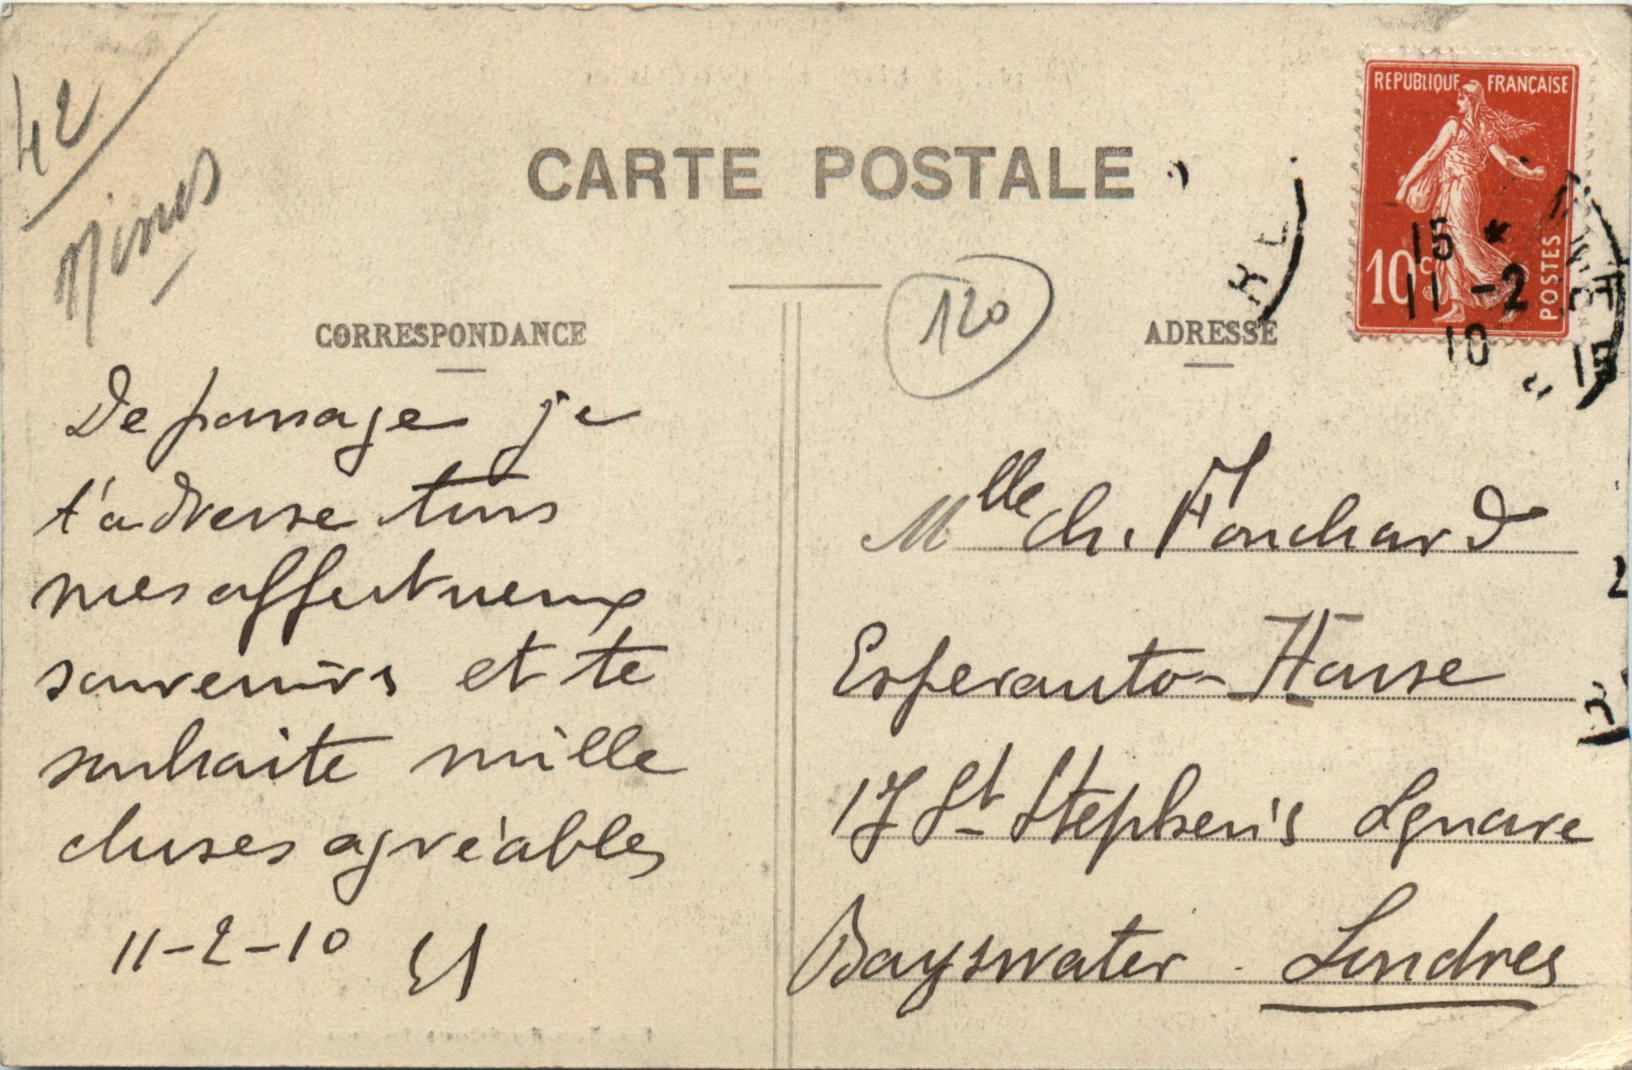 42
Mines
CARTE POSTALE
REPUBLIQUE FRANÇAISE
10c
POSTES
15 *
11 -2
10
120
CORRESPONDANCE
ADRESSE
De passage je
t'adresse tous
mes affectueux
souvenirs et te
souhaite mille
choses agréables
11-2-10
Mlle Ch. Fouchard
Esperanto-House
17 St Stephen's Square
Bayswater. Londres